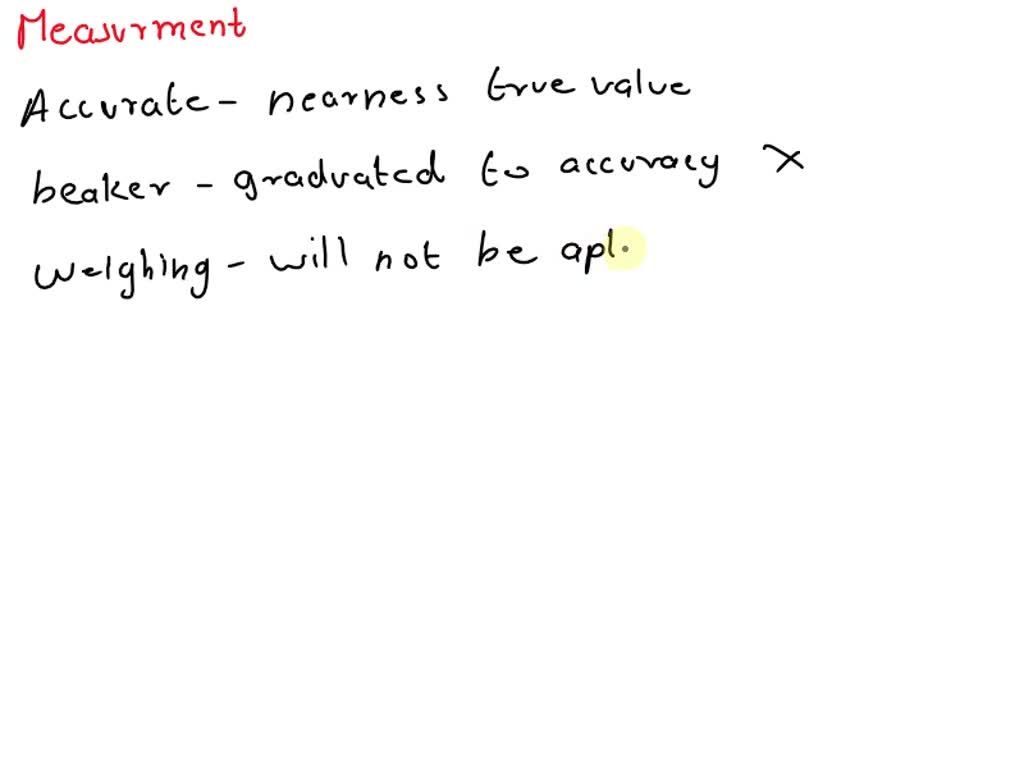 Measurment
Accurate - nearness true value
beaker - graduated to accuracy X
weighing - will not be apl